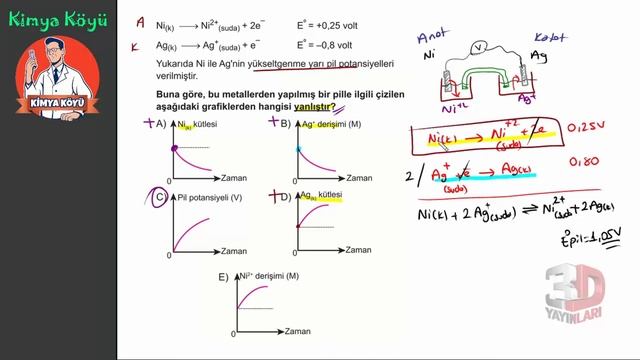 Kimya Köyü
KİMYA KÖYÜ
A Ni(k) ⟶ Ni²⁺(suda) + 2e⁻ E° = +0,25 volt
K Ag(k) ⟶ Ag⁺(suda) + e⁻ E° = –0,8 volt
Yukarıda Ni ile Ag'nin yükseltgenme yarı pil potansiyelleri
verilmiştir.
Buna göre, bu metallerden yapılmış bir pille ilgili çizilen
aşağıdaki grafiklerden hangisi yanlıştır?
+ A) Ni(k) kütlesi
0 Zaman
+ B) Ag⁺ derişimi (M)
0 Zaman
C) Pil potansiyeli (V)
0 Zaman
+ D) Ag(k) kütlesi
0 Zaman
E) Ni²⁺ derişimi (M)
0 Zaman
Anot Katot
Ni V Ag
Ni⁺² Ag⁺
Ni(k) → Ni⁺²(suda) + 2e 0,25V
2/ Ag⁺(suda) + e⁻ → Ag(k) 0,80
Ni(k) + 2Ag⁺(suda) ⇌ Ni²⁺(suda) + 2Ag(k)
E°pil = 1,05V
3D
YAYINLARI